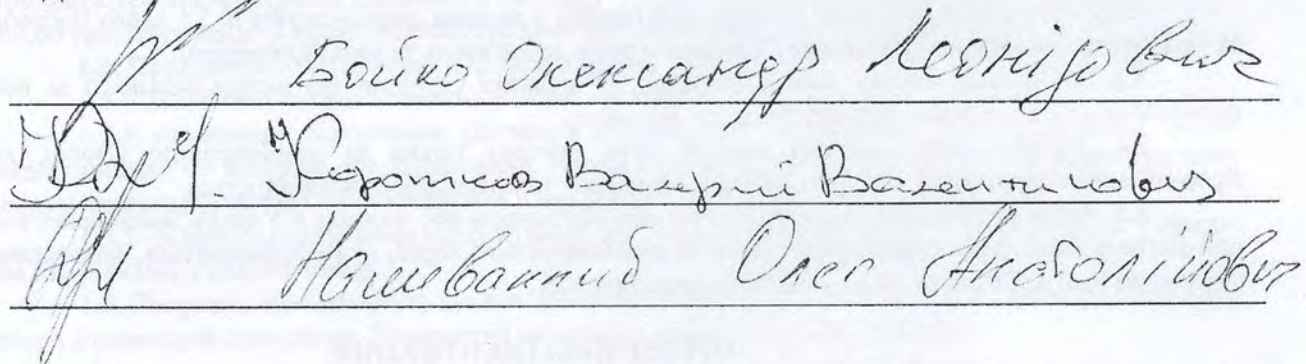 Бойко Олександр Леонідович
Коротков Валерий Валентинович
Наливанний Олег Анатолійович